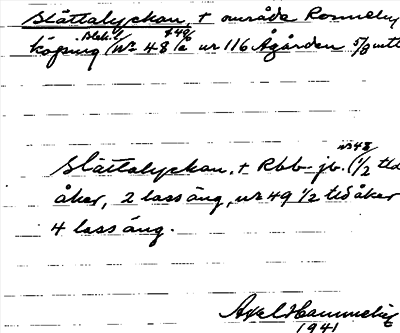 Slättalyckan, + område Ronneby
köping (Nr 48 ur 116 Ågården 5/8 mtl
Slättalyckan, + Rbb-jb. (nr 48 1/2 tld
åker, 2 lass äng, nr 49 1/2 tld åker
4 lass äng.
Axel Hammelin
1941